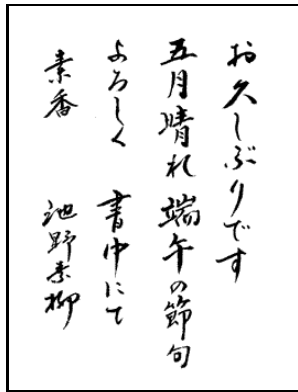 お久しぶりです
五月晴れ 端午の節句
よろしく 書中にて
素香 池野素柳